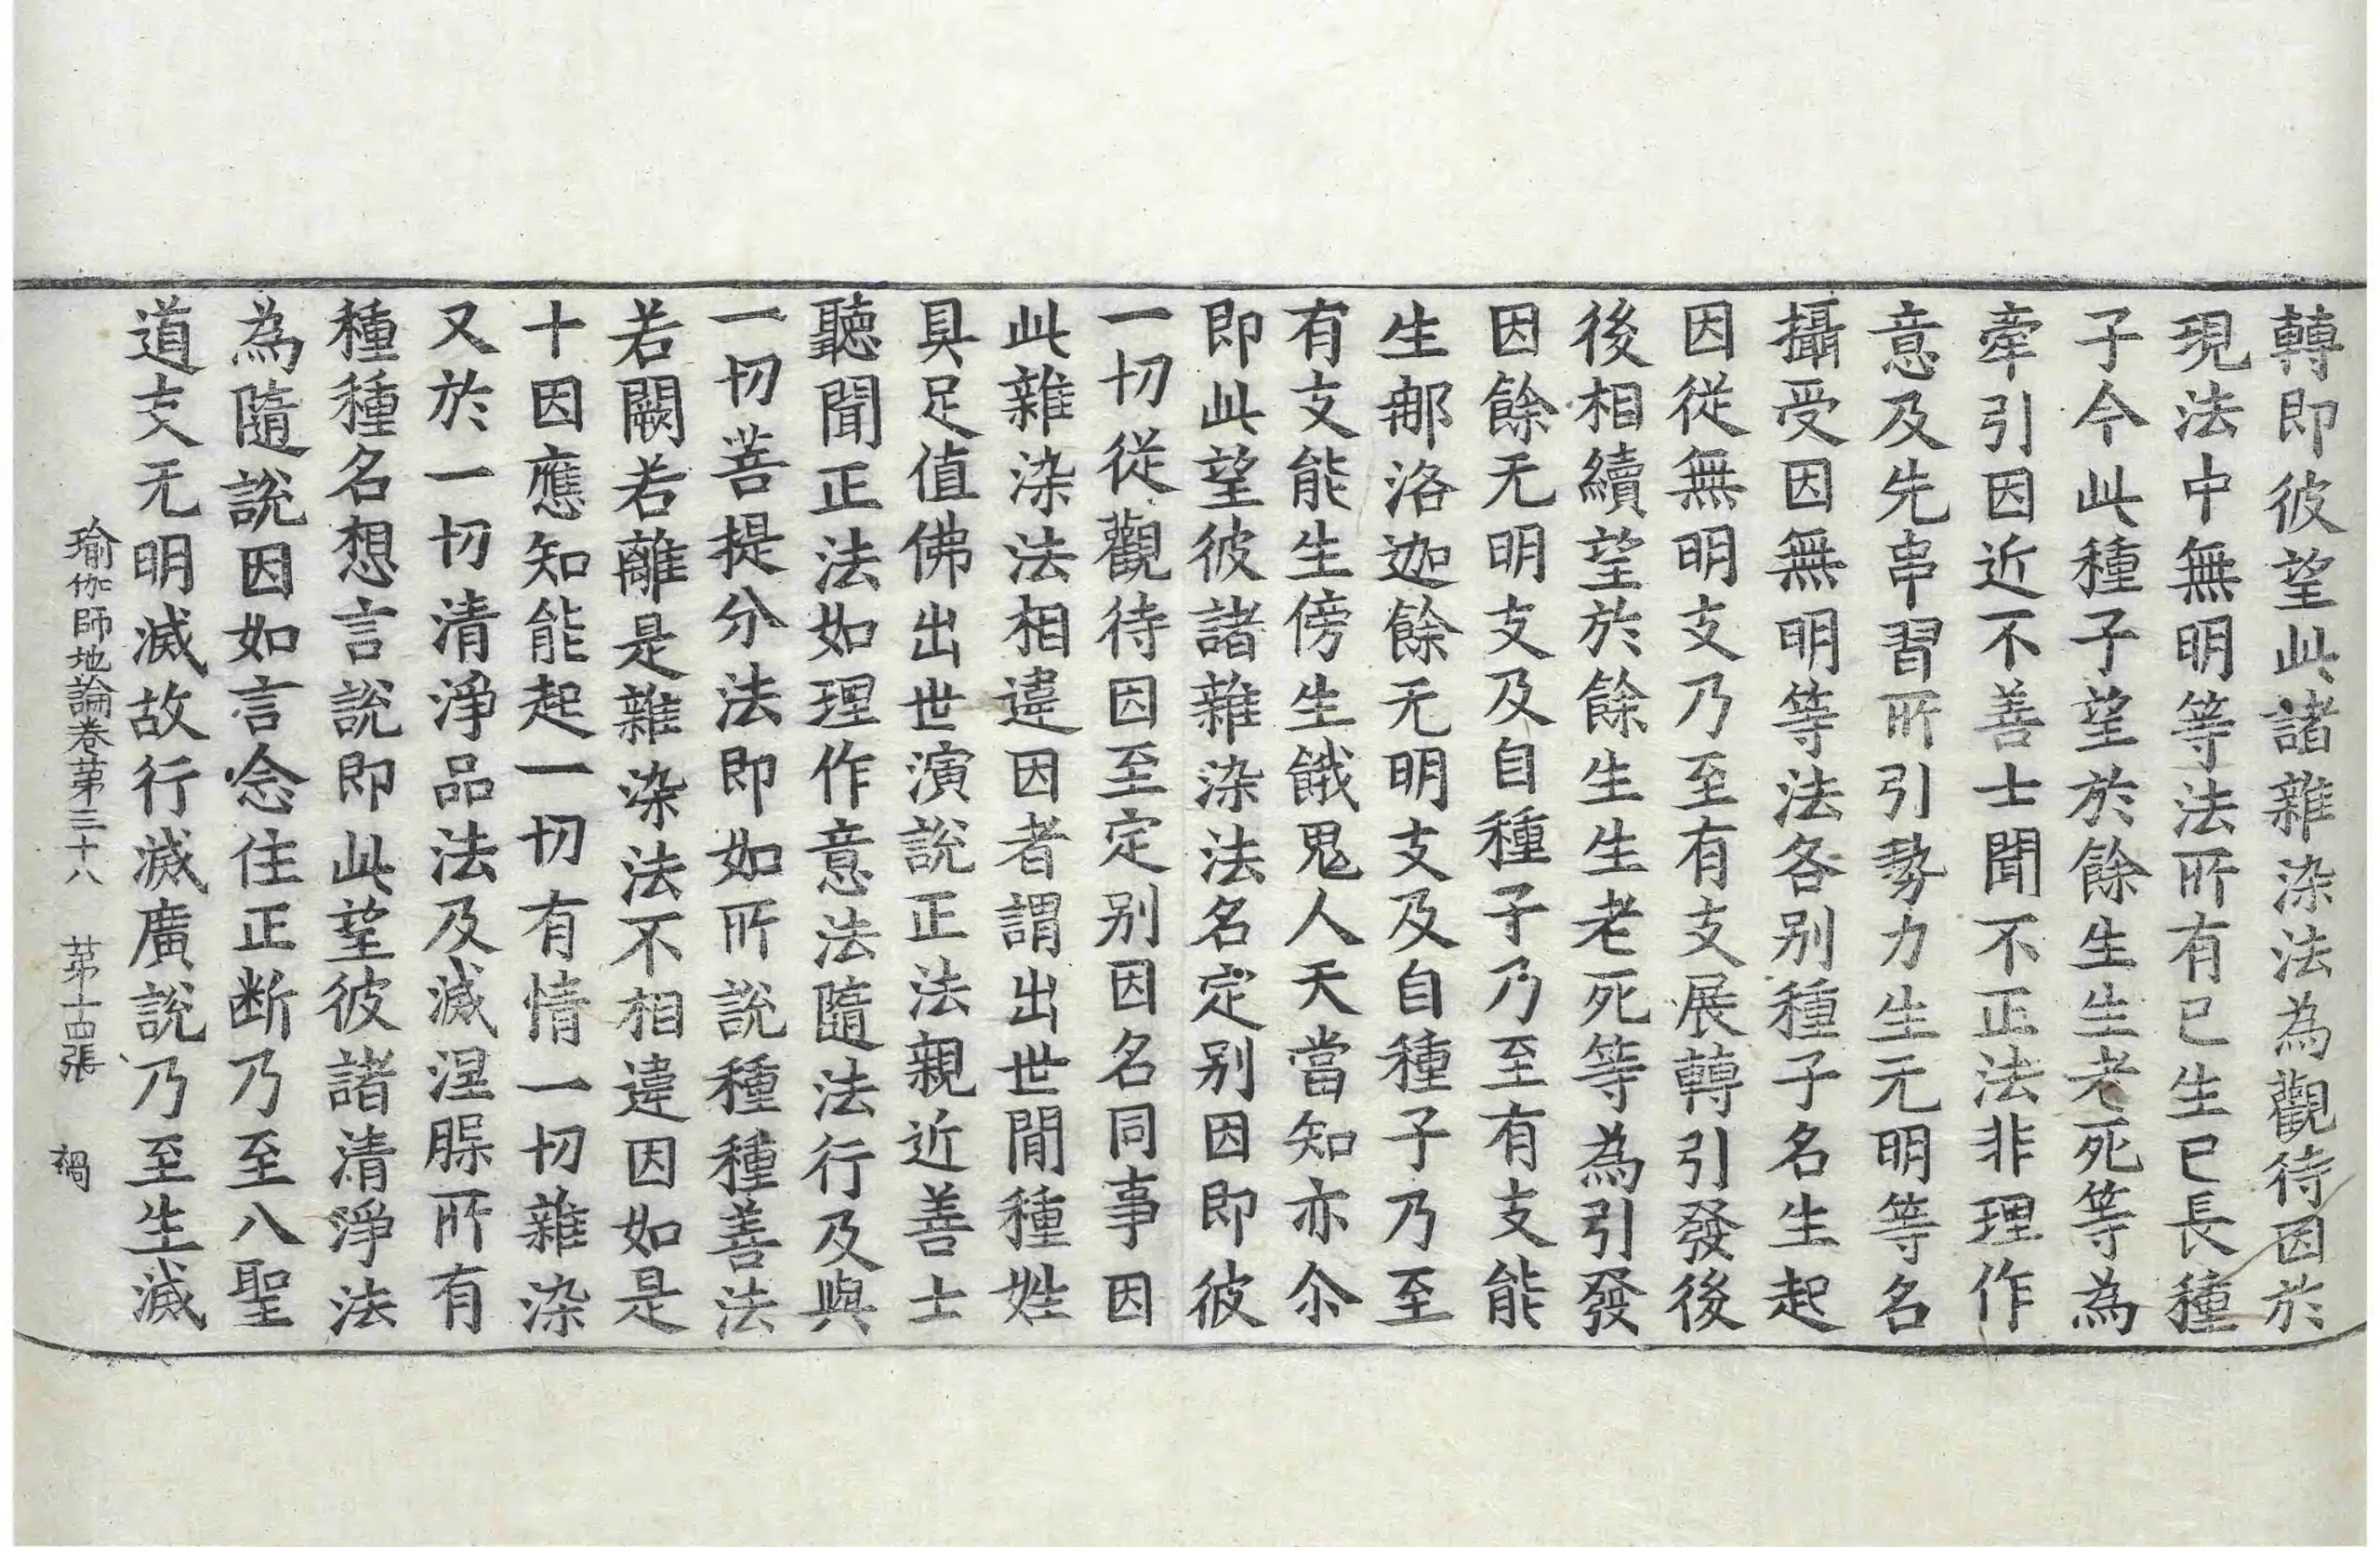 轉即彼望此諸雜染法為觀待因於
現法中無明等法所有已生已長種
子今此種子望於餘生生老死等為
牽引因近不善士聞不正法非理作
意及先串習所引勢力生无明等名
攝受因無明等法各別種子名生起
因從無明支乃至有支展轉引發後
後相續望於餘生生老死等為引發
因餘无明支及自種子乃至有支能
生那洛迦餘无明支及自種子乃至
有支能生傍生餓鬼人天當知亦尒
即此望彼諸雜染法名定別因即彼
一切從觀待因至定別因名同事因
此雜染法相違因者謂出世間種姓
具足值佛出世演說正法親近善士
聽聞正法如理作意法隨法行及與
一切菩提分法即如所說種種善法
若闕若離是雜染法不相違因如是
十因應知能起一切有情一切雜染
又於一切清淨品法及滅涅槃所有
種種名想言說即此望彼諸清淨法
為隨說因如言念住正断乃至八聖
道支无明滅故行滅廣說乃至生滅
瑜伽師地論卷第三十八 第十四張 禍